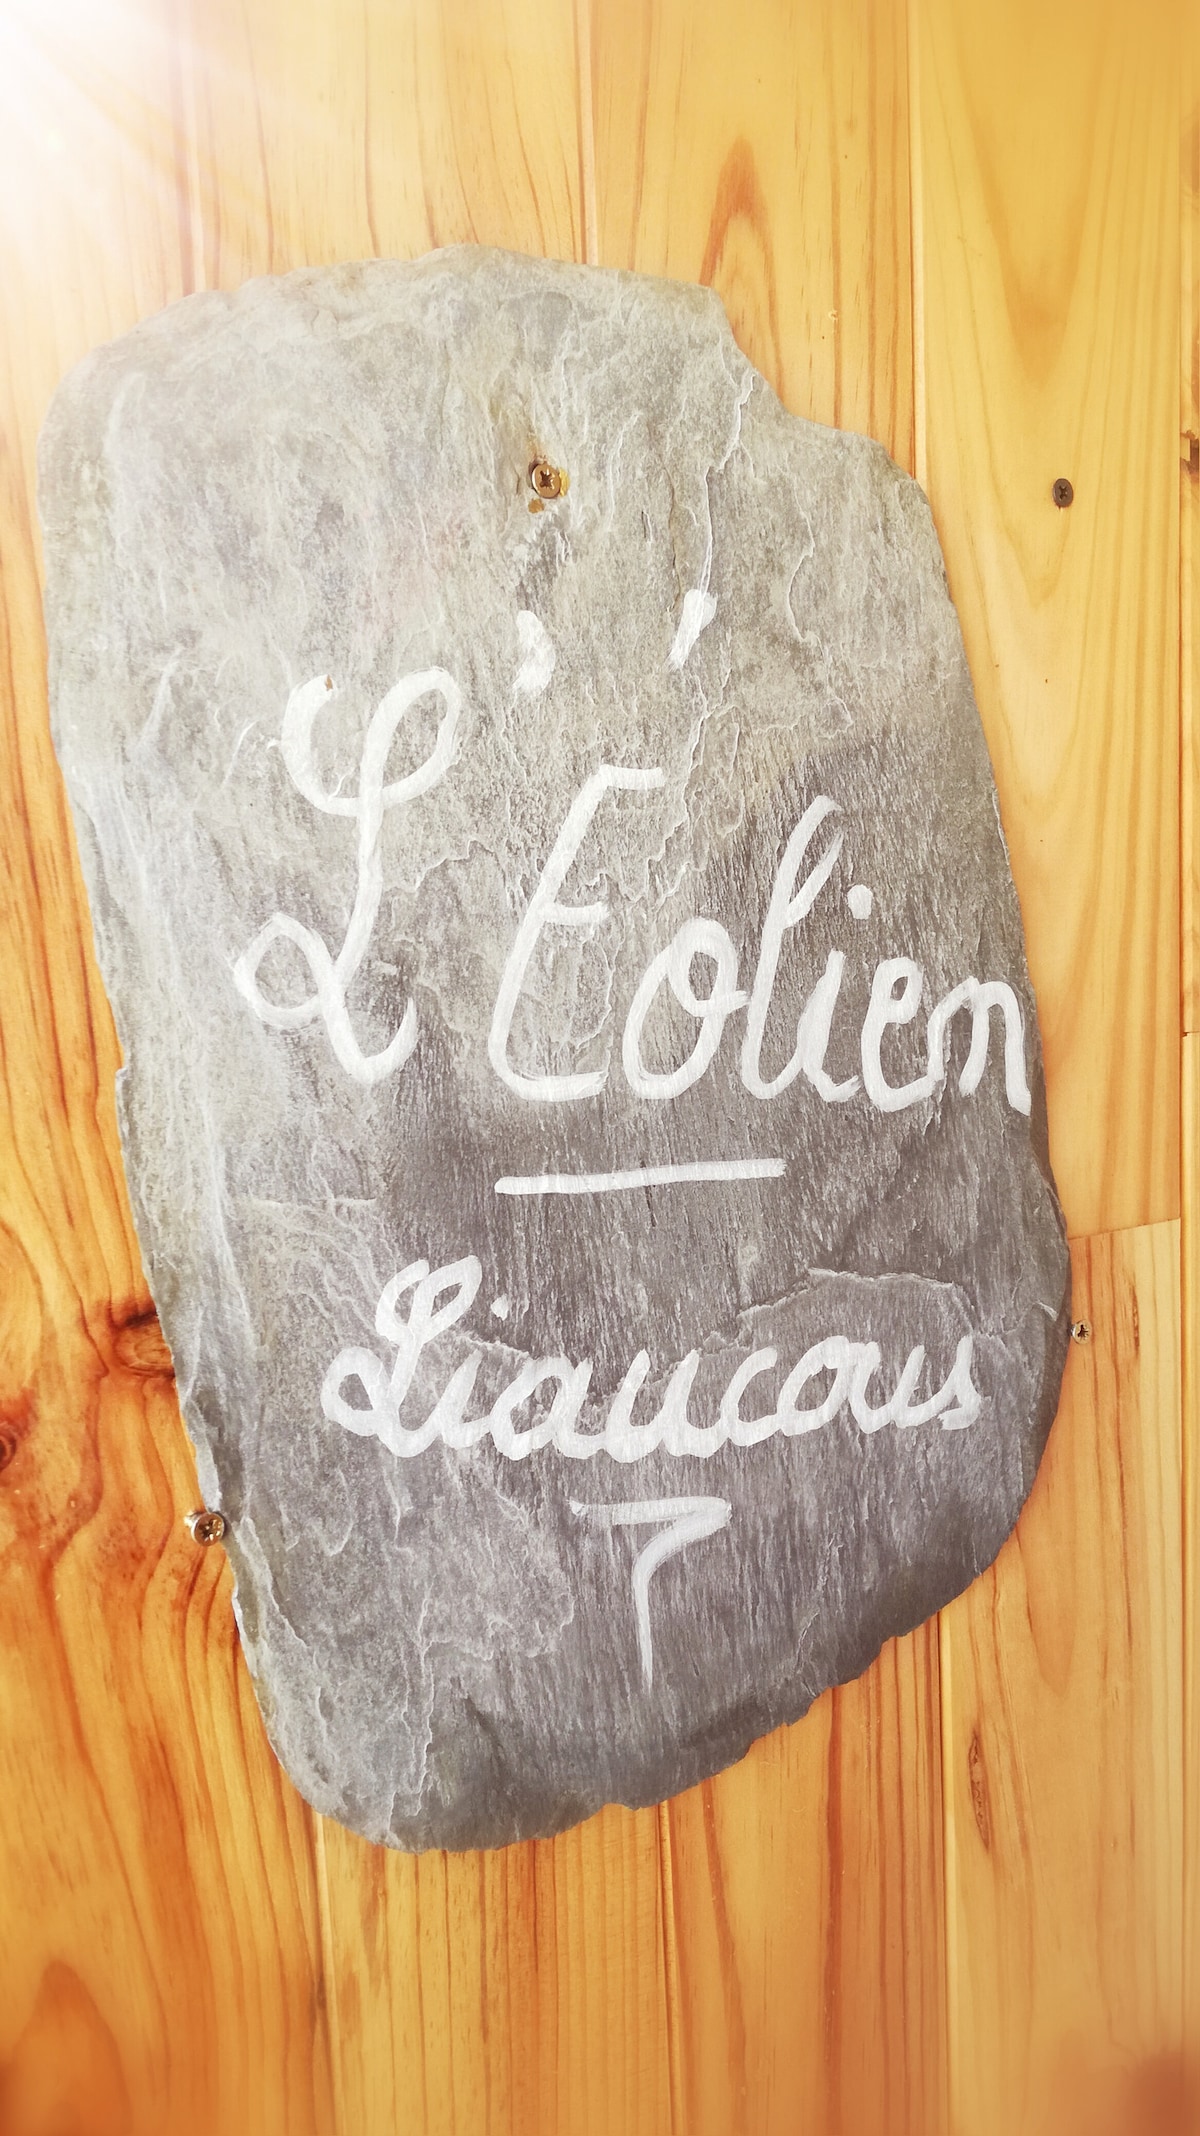 L'Éolien
Liaucous